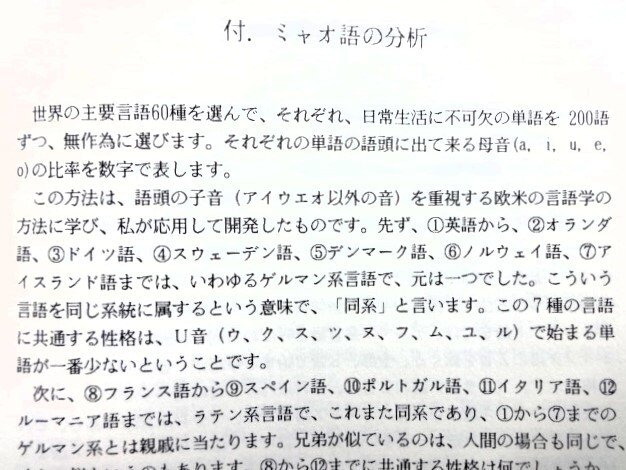 付．ミャオ語の分析
世界の主要言語60種を選んで、それぞれ、日常生活に不可欠の単語を 200語
ずつ、無作為に選びます。それぞれの単語の語頭に出て来る母音(a, i, u, e,
o)の比率を数字で表します。
この方法は、語頭の子音（アイウエオ以外の音）を重視する欧米の言語学の
方法に学び、私が応用して開発したものです。先ず、①英語から、②オランダ
語、③ドイツ語、④スウェーデン語、⑤デンマーク語、⑥ノルウェイ語、⑦ア
イスランド語までは、いわゆるゲルマン系言語で、元は一つでした。こういう
言語を同じ系統に属するという意味で、「同系」と言います。この７種の言語
に共通する性格は、Ｕ音（ウ、ク、ス、ツ、ヌ、フ、ム、ユ、ル）で始まる単
語が一番少ないということです。
次に、⑧フランス語から⑨スペイン語、⑩ポルトガル語、⑪イタリア語、⑫
ルーマニア語までは、ラテン系言語で、これまた同系であり、①から⑦までの
ゲルマン系とは親戚に当たります。兄弟が似ているのは、人間の場合も同じで、
⑧から⑫までに共通する性格は何でしょうか